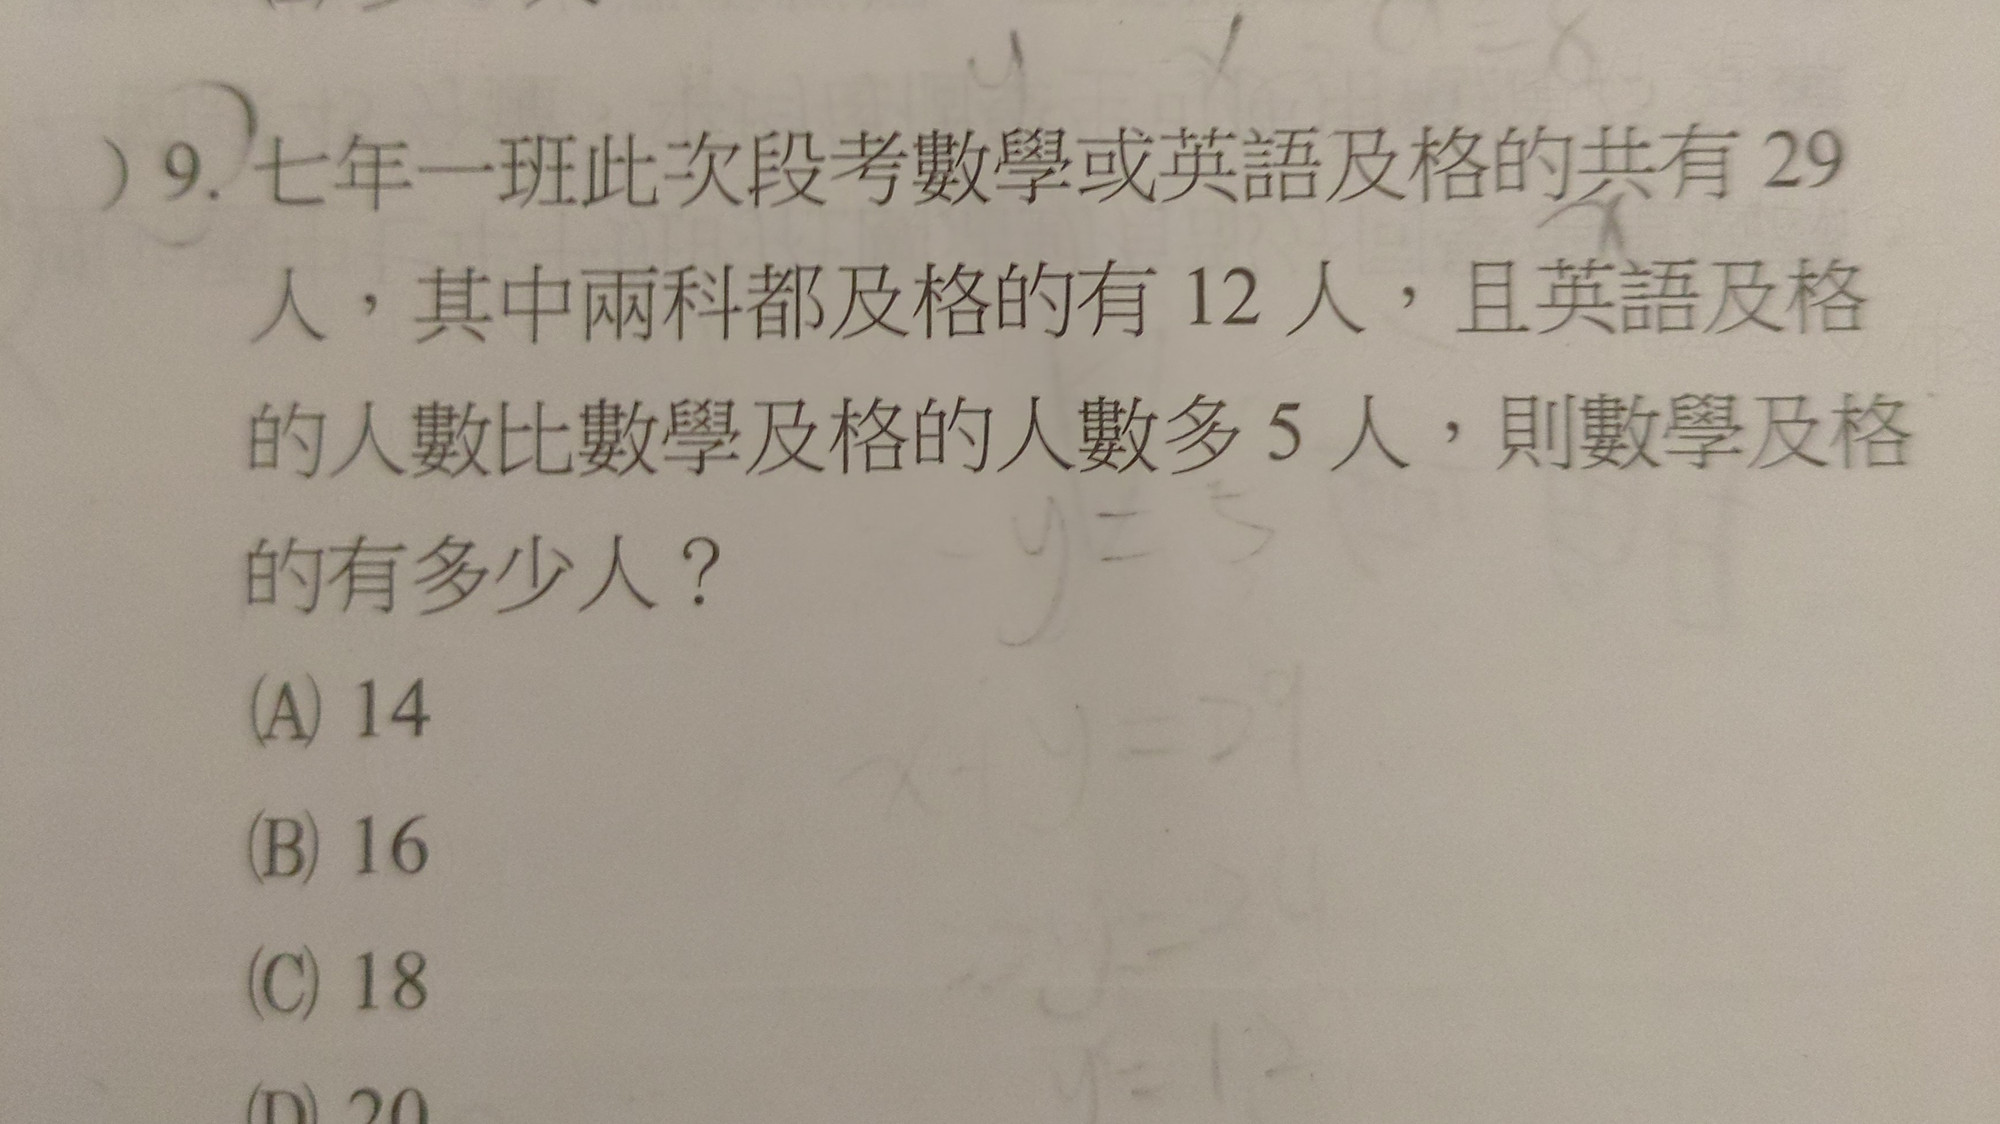 y
) 9. 七年一班此次段考數學或英語及格的共有 29
x
人，其中兩科都及格的有 12 人，且英語及格
的人數比數學及格的人數多 5 人，則數學及格
- y = 5
的有多少人？
(A) 14
x + y = 29
(B) 16
(C) 18
y = 12
(D) 20